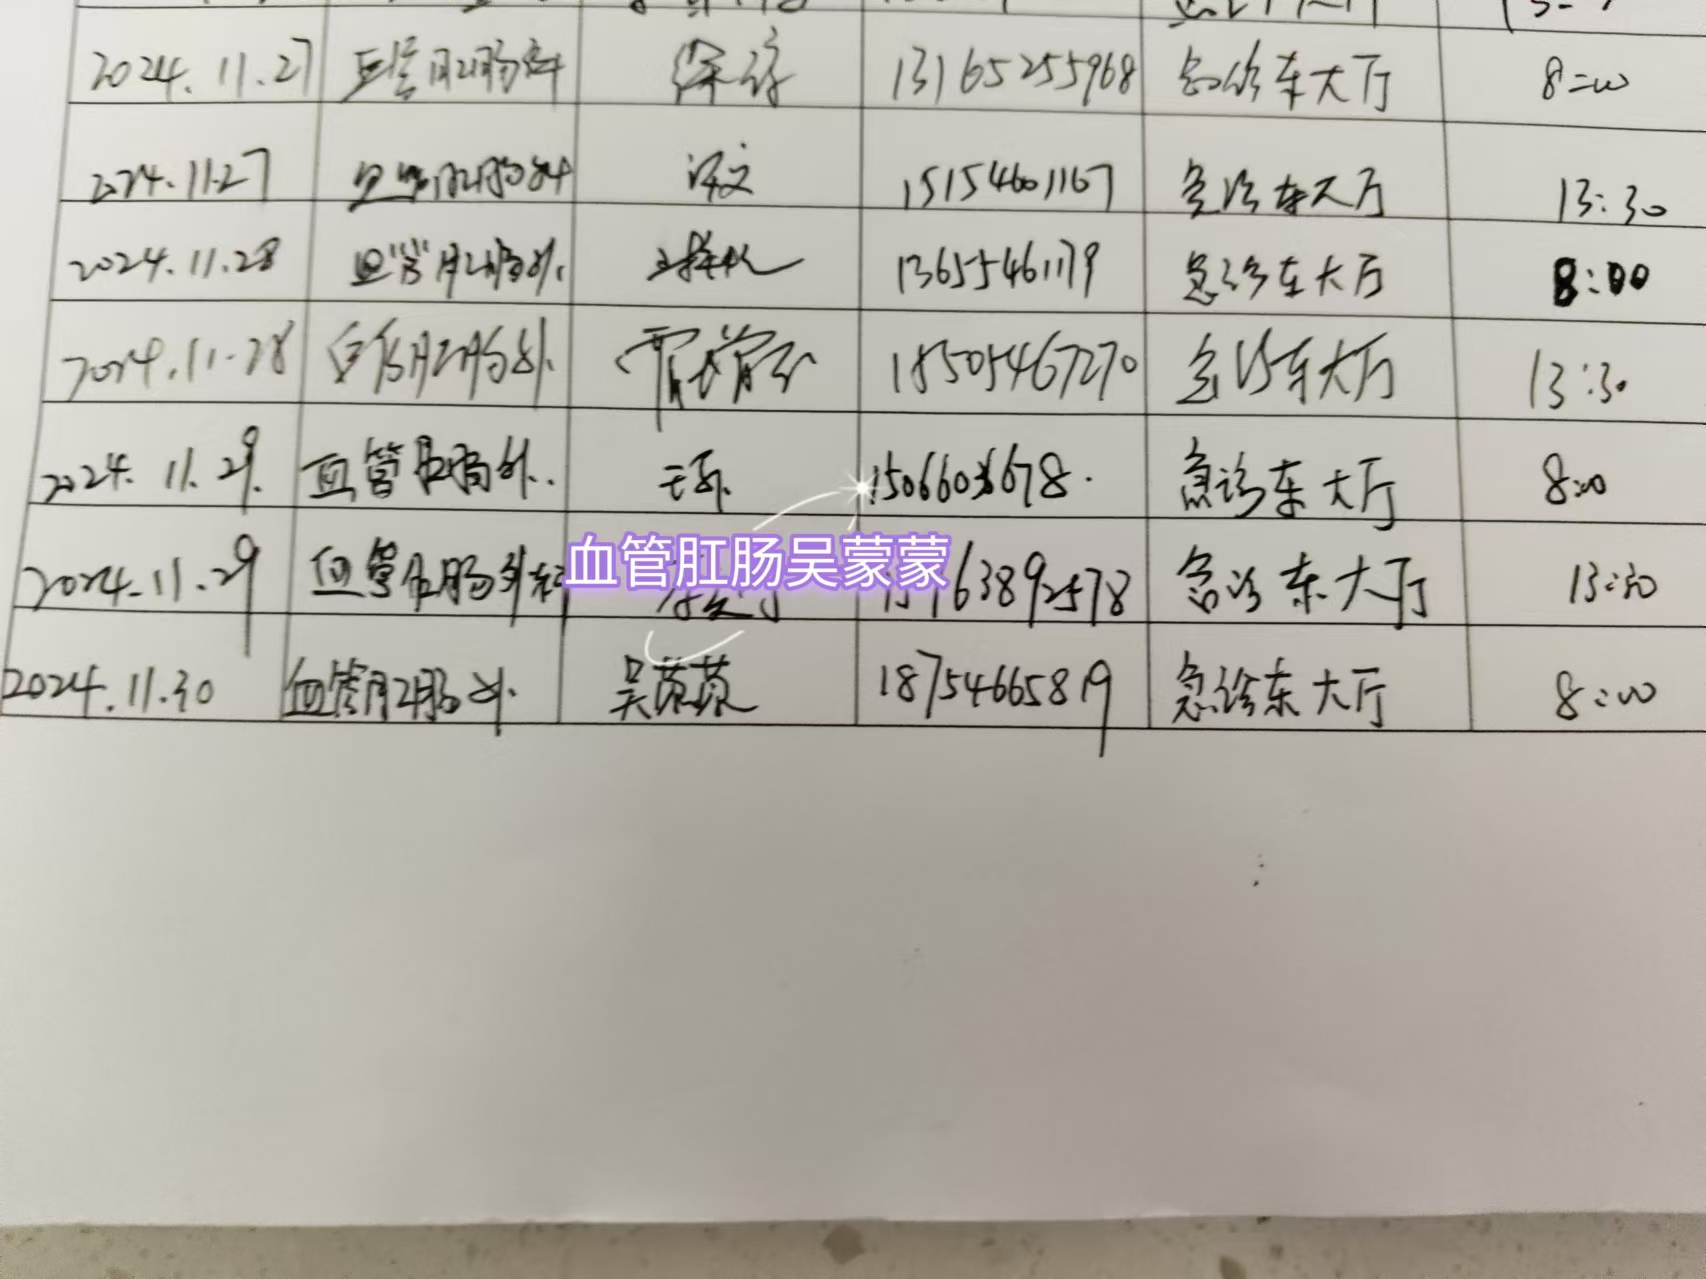 2024.11.27 血管肛肠外科 徐 13165255968 急诊东大厅 8:00
2024.11.27 血管肛肠外科 文 15154601167 急诊东大厅 13:30
2024.11.28 血管肛肠外. 13655461179 急诊东大厅 8:00
2024.11.28 血管肛肠外. 贾 18505467270 急诊东大厅 13:30
2024.11.29. 血管肛肠外.. 王 急诊东大厅 8:00
2024.11.29 血管肛肠外科 急诊东大厅 13:30
血管肛肠吴蒙蒙
2024.11.30 血管肛肠外. 吴蒙蒙 18754665819 急诊东大厅 8:00